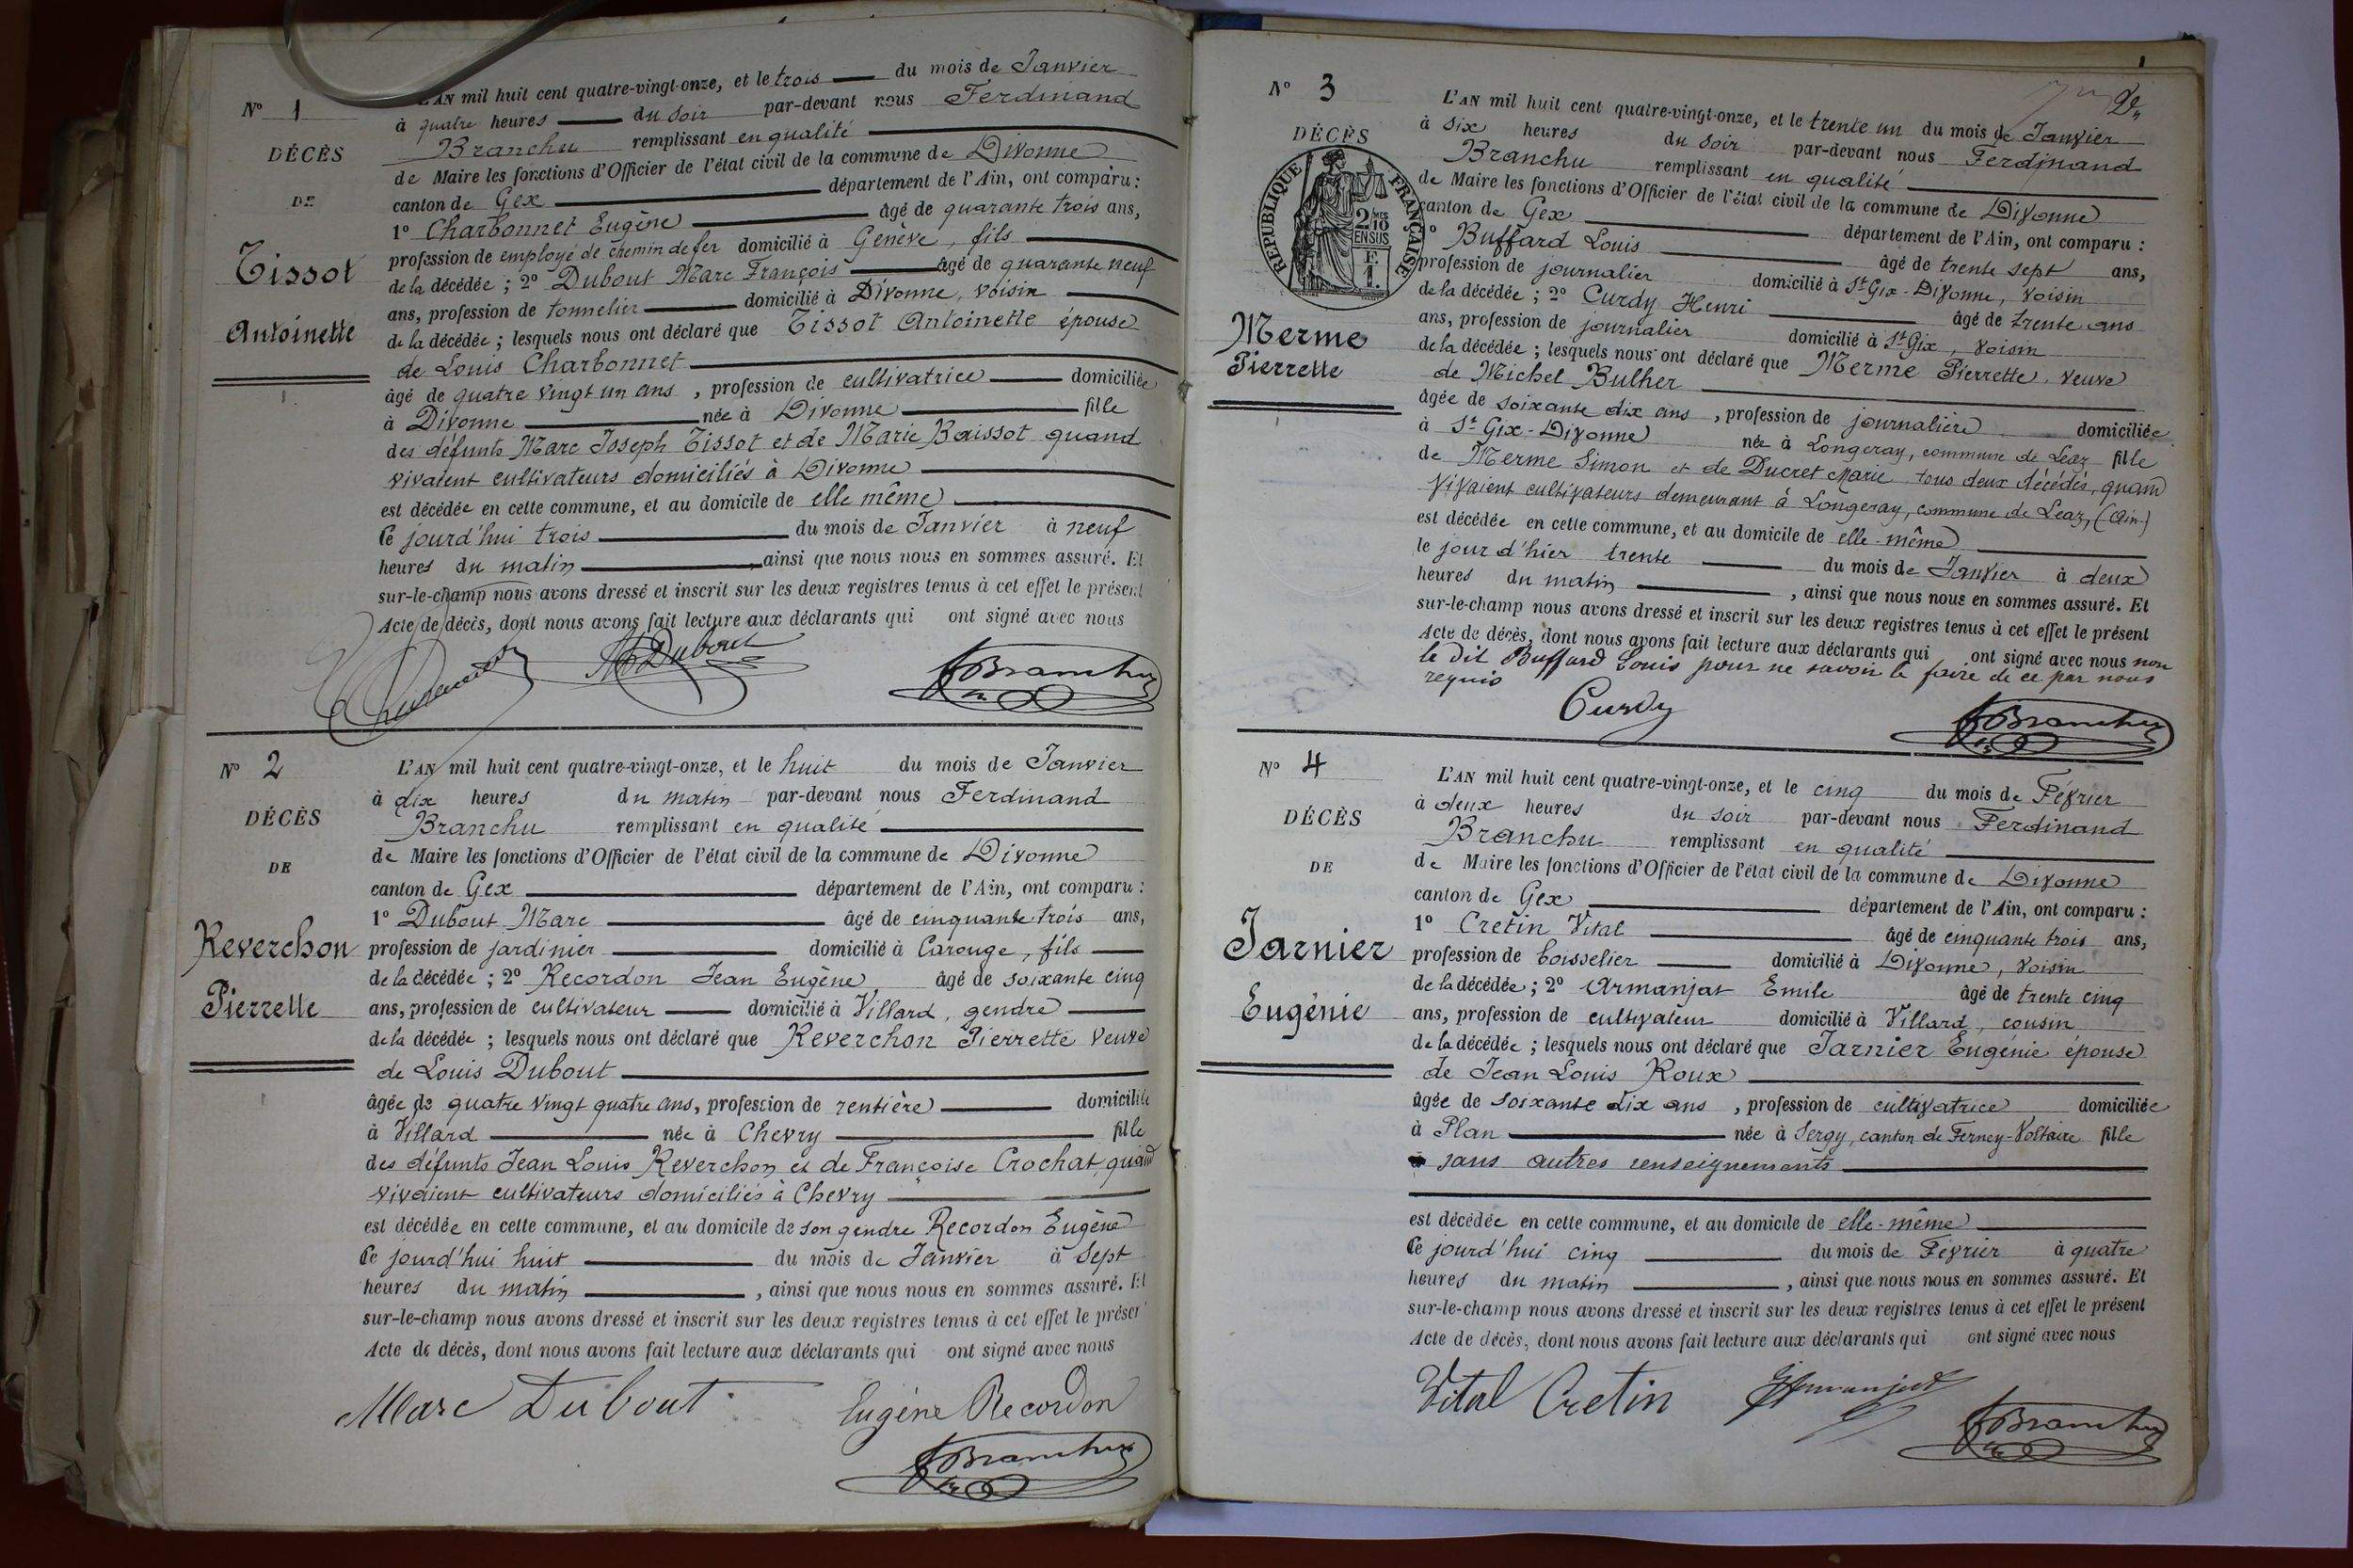 N° 1
DÉCÈS
DE
Tissot
Antoinette
L'AN mil huit cent quatre-vingt-onze, et le trois du mois de Janvier
à quatre heures du soir par-devant nous Ferdinand
Branchu remplissant en qualité
de Maire les fonctions d'Officier de l'état civil de la commune de Divonne
canton de Gex département de l'Ain, ont comparu :
1° Charbonnet Eugène âgé de quarante trois ans,
profession de employé de chemin de fer domicilié à Genève, fils
de la décédée ; 2° Dubout Marc François âgé de quarante neuf
ans, profession de tonnelier domicilié à Divonne, voisin
de la décédée ; lesquels nous ont déclaré que Tissot Antoinette épouse
de Louis Charbonnet
âgé de quatre vingt un ans, profession de cultivatrice domiciliée
à Divonne née à Divonne fille
des défunts Marc Joseph Tissot et de Marie Baissot quand
vivaient cultivateurs domiciliés à Divonne
est décédée en cette commune, et au domicile de elle même
Ce jourd'hui trois du mois de Janvier à neuf
heures du matin, ainsi que nous nous en sommes assuré. Et
sur-le-champ nous avons dressé et inscrit sur les deux registres tenus à cet effet le présent
Acte de décès, dont nous avons fait lecture aux déclarants qui ont signé avec nous
Dubout Branchu
N° 2
DÉCÈS
DE
Reverchon
Pierrette
L'AN mil huit cent quatre-vingt-onze, et le huit du mois de Janvier
à dix heures du matin par-devant nous Ferdinand
Branchu remplissant en qualité
de Maire les fonctions d'Officier de l'état civil de la commune de Divonne
canton de Gex département de l'Ain, ont comparu :
1° Dubout Marc âgé de cinquante trois ans,
profession de jardinier domicilié à Carouge, fils
de la décédée ; 2° Recordon Jean Eugène, âgé de soixante cinq
ans, profession de cultivateur domicilié à Villard, gendre
de la décédée ; lesquels nous ont déclaré que Reverchon Pierrette veuve
de Louis Dubout
âgée de quatre vingt quatre ans, profession de rentière domiciliée
à Villard née à Chevry fille
des défunts Jean Louis Reverchon et de Françoise Crochat, quand
vivaient cultivateurs domiciliés à Chevry
est décédée en cette commune, et au domicile de son gendre Recordon Eugène
Ce jourd'hui huit du mois de Janvier à sept
heures du matin, ainsi que nous nous en sommes assuré. Et
sur-le-champ nous avons dressé et inscrit sur les deux registres tenus à cet effet le présen
Acte de décès, dont nous avons fait lecture aux déclarants qui ont signé avec nous
Marc Dubout Eugène Recordon
Branchu
N° 3
DÉCÈS
RÉPUBLIQUE FRANÇAISE
2/10MES
EN SUS
F.
1.
Merme
Pierrette
L'AN mil huit cent quatre-vingt-onze, et le trente un du mois de Janvier
à six heures du soir par-devant nous Ferdinand
Branchu remplissant en qualité
de Maire les fonctions d'Officier de l'état civil de la commune de Divonne
canton de Gex département de l'Ain, ont comparu :
1° Buffard Louis âgé de trente sept ans,
profession de journalier domicilié à St Gix-Divonne, voisin
de la décédée ; 2° Curdy Henri âgé de trente ans
ans, profession de journalier domicilié à St Gix, voisin
de la décédée ; lesquels nous ont déclaré que Merme Pierrette, veuve
de Michel Bulher
âgée de soixante dix ans, profession de journalière domiciliée
à St Gix-Divonne née à Longeray, commune de Leaz fille
de Merme Simon et de Ducret Marie, tous deux décédés, quand
vivaient cultivateurs demeurant à Longeray, commune de Leaz, (Ain)
est décédée en cette commune, et au domicile de elle-même
le jour d'hier trente du mois de Janvier à deux
heures du matin, ainsi que nous nous en sommes assuré. Et
sur-le-champ nous avons dressé et inscrit sur les deux registres tenus à cet effet le présent
Acte de décès, dont nous avons fait lecture aux déclarants qui ont signé avec nous non
le dit Buffard Louis pour ne savoir le faire de ce par nous
requis
Curdy Branchu
N° 4
DÉCÈS
DE
Jarnier
Eugénie
L'AN mil huit cent quatre-vingt-onze, et le cinq du mois de Février
à deux heures du soir par-devant nous Ferdinand
Branchu remplissant en qualité
de Maire les fonctions d'Officier de l'état civil de la commune de Divonne
canton de Gex département de l'Ain, ont comparu :
1° Cretin Vital âgé de cinquante trois ans,
profession de boisselier domicilié à Divonne, voisin
de la décédée ; 2° Armanjat Emile âgé de trente cinq
ans, profession de cultivateur domicilié à Villard, cousin
de la décédée ; lesquels nous ont déclaré que Jarnier Eugénie épouse
de Jean Louis Roux
âgée de soixante dix ans, profession de cultivatrice, domiciliée
à Plan née à Sergy, canton de Ferney-Voltaire fille
sans autres renseignements
est décédée en cette commune, et au domicile de elle-même
Ce jourd'hui cinq du mois de Février à quatre
heures du matin, ainsi que nous nous en sommes assuré. Et
sur-le-champ nous avons dressé et inscrit sur les deux registres tenus à cet effet le présent
Acte de décès, dont nous avons fait lecture aux déclarants qui ont signé avec nous
Vital Cretin Armanjat
Branchu